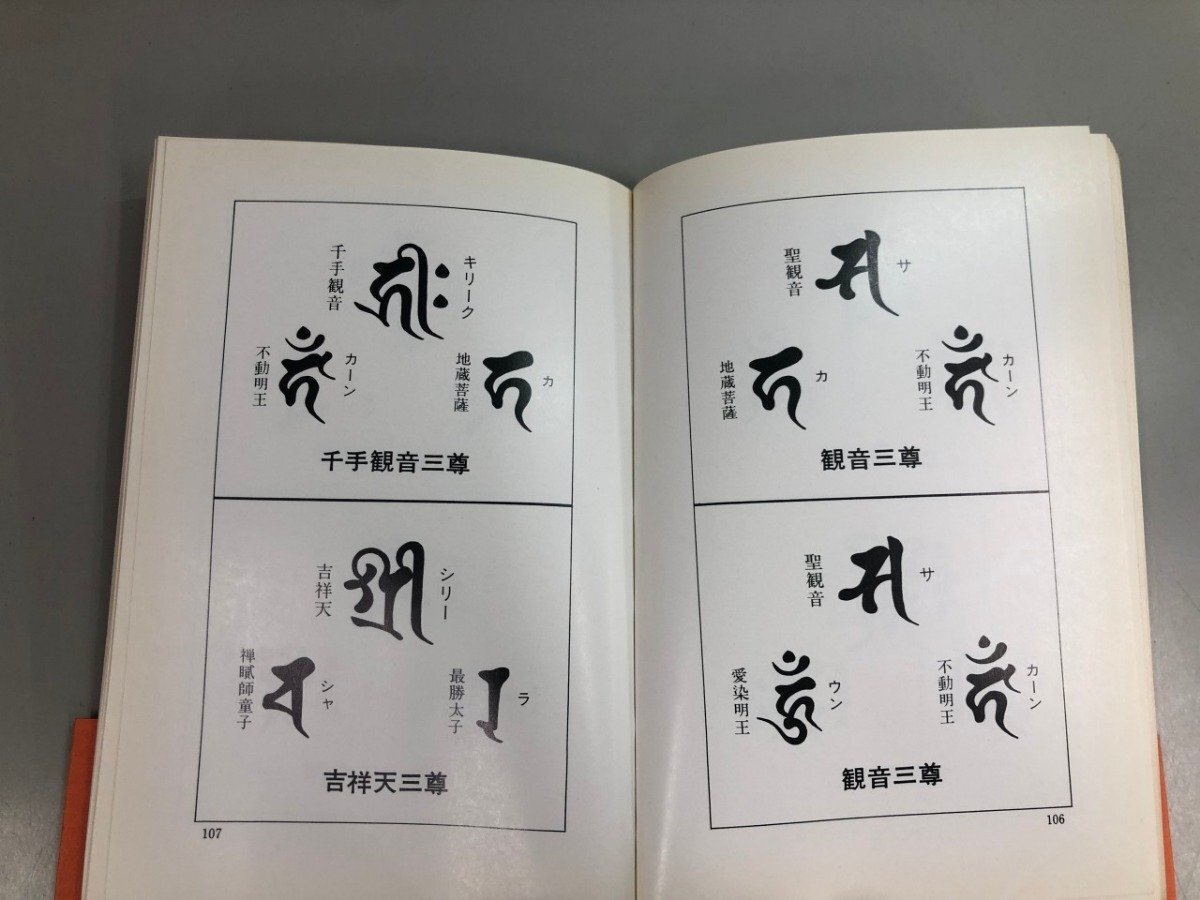 サ
聖観音
カーン
不動明王
カ
地蔵菩薩
観音三尊
サ
聖観音
カーン
不動明王
ウン
愛染明王
観音三尊
106
キリーク
千手観音
カ
地蔵菩薩
カーン
不動明王
千手観音三尊
シリー
吉祥天
ラ
最勝太子
シャ
禅膩師童子
吉祥天三尊
107